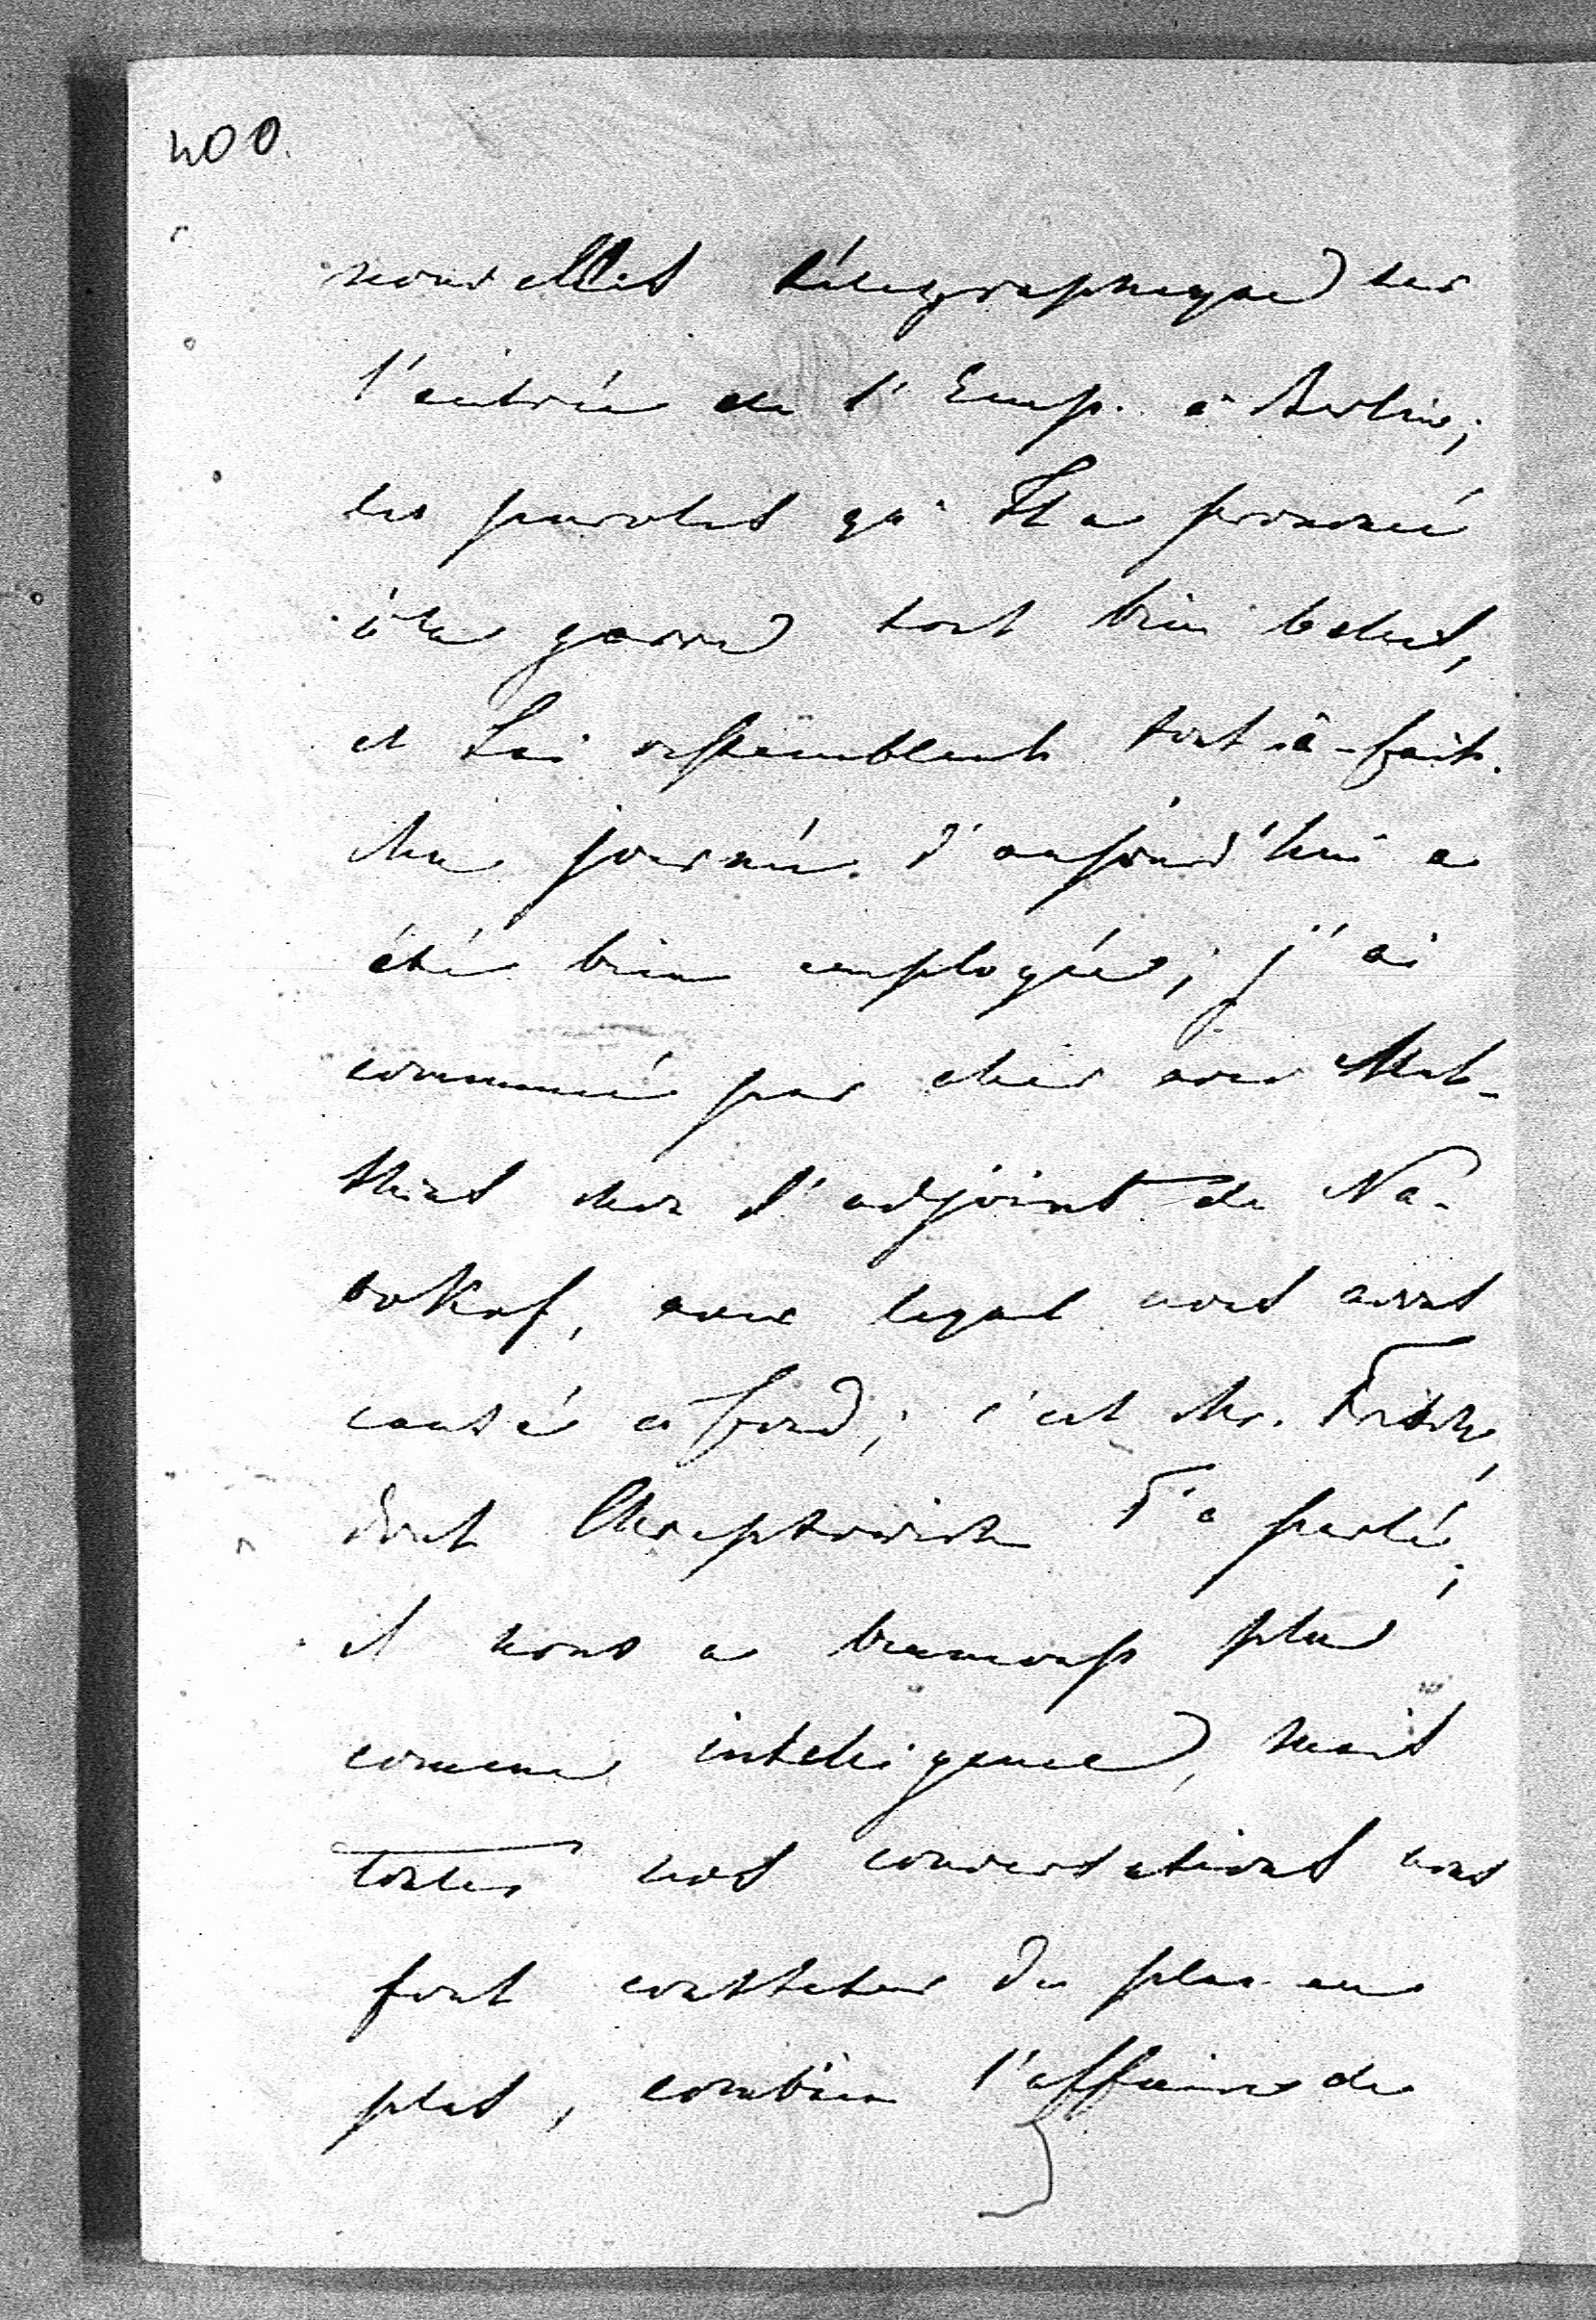 400.
nouvelles télegraphiques sur
l'entrée de l'Emp. à Berlin;
les paroles qu'Il a prononcé
à la garre sont bien belles,
et Lui ressemblent tout-à-fait.
Ma journée d'aujourd'hui a
été bien employée; j'ai
commencé par aller avec Mat-
thias chez l'adjoint de Na-
bokof, avec lequel nous avons
causé à fond; c'est Mr. Frisch,
dont Chreptowich T'a parlé;
il nous a beaucoup plu
comme inteligence, mais
toutes nos conversations nous
font constater de plus en
plus, combien l'affaire de